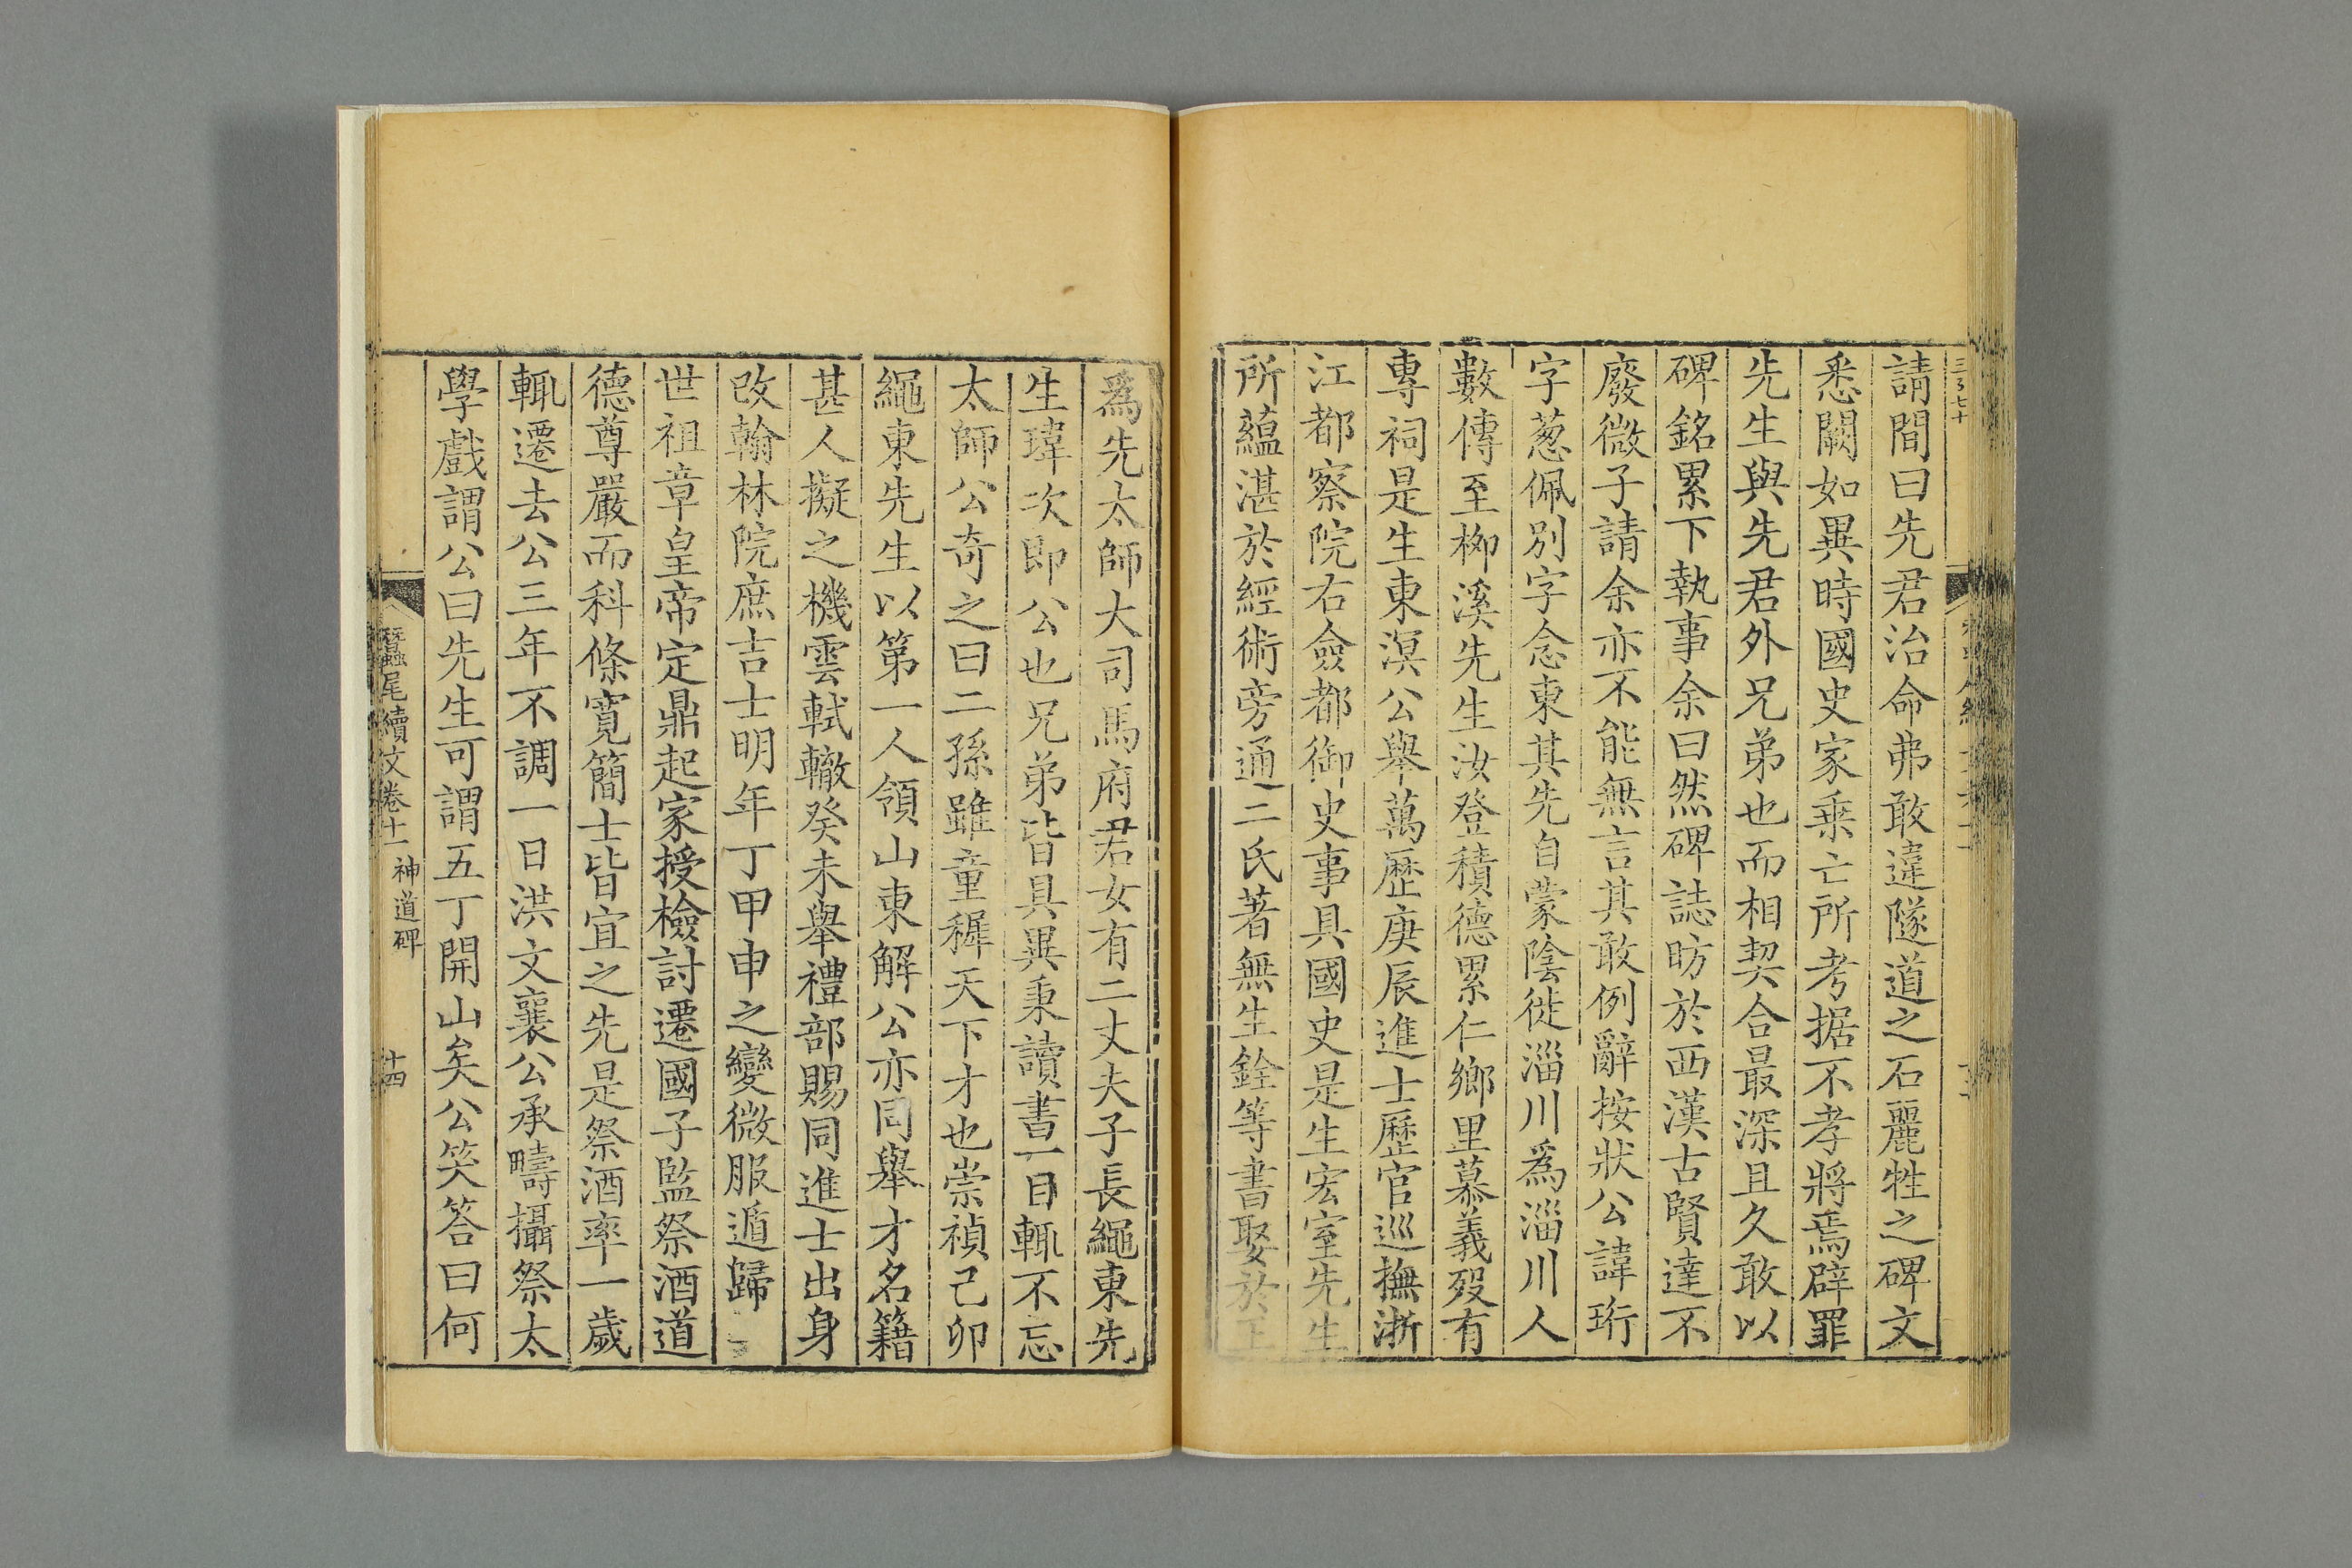 請間曰先君治命弗敢違隧道之石麗牲之碑文
悉闕如異時國史家乘亡所考据不孝將焉辟罪
先生與先君外兄弟也而相契合最深且久敢以
碑銘累下執事余曰然碑誌昉於西漢古賢達不
廢微子請余亦不能無言其敢例辭按狀公諱珩
字蔥佩別字念東其先自蒙陰徙淄川爲淄川人
數傳至柳溪先生汝登積德累仁鄉里慕義歿有
專祠是生東溟公舉萬歷庚辰進士歷官巡撫浙
江都察院右僉都御史事具國史是生宏室先生
所蘊湛於經術旁通二氏著無生銓等書娶於王
爲先太師大司馬府君女有二丈夫子長繩東先
生瑋次即公也兄弟皆具異秉讀書一目輒不忘
太師公奇之曰二孫雖童穉天下才也崇禎己卯
繩東先生以第一人領山東解公亦同舉才名籍
甚人擬之機雲軾轍癸未舉禮部賜同進士出身
改翰林院庶吉士明年丁甲申之變微服遁歸
世祖章皇帝定鼎起家授檢討遷國子監祭酒道
德尊嚴而科條寬簡士皆宜之先是祭酒率一歲
輒遷去公三年不調一日洪文襄公承疇攝祭太
學戲謂公曰先生可謂五丁開山矣公笑答曰何
蠶尾續文卷十一 神道碑 十四